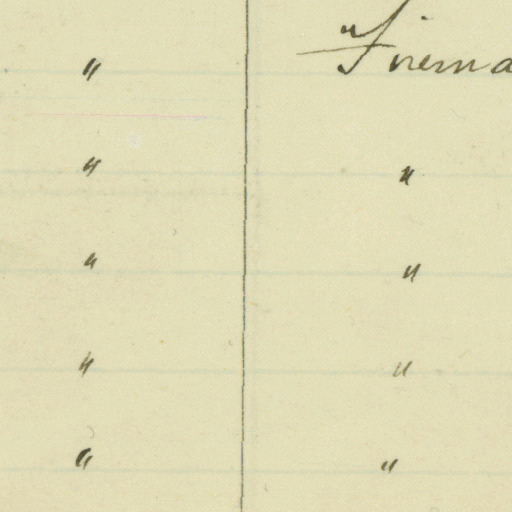 " Firema
" "
" "
" "
" "